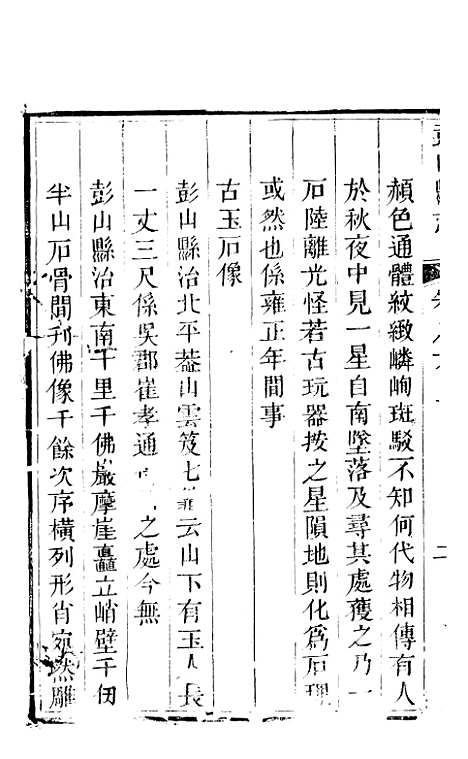 顏色通體紋緻嶙峋斑駁不知何代物相傳有人
於秋夜中見一星自南墜落及尋其處獲之乃一
石陸離光怪若古玩器按之星隕地則化為石理
或然也係雍正年間事
古玉石像
彭山縣治北平葢山雲笈七籤云山下有玉人長
一丈三尺係吳郡崔孝通之處今無
彭山縣治東南千里千佛巖摩崖矗立峭壁千仞
半山石骨間刋佛像千餘次序橫列形肖宛然雕